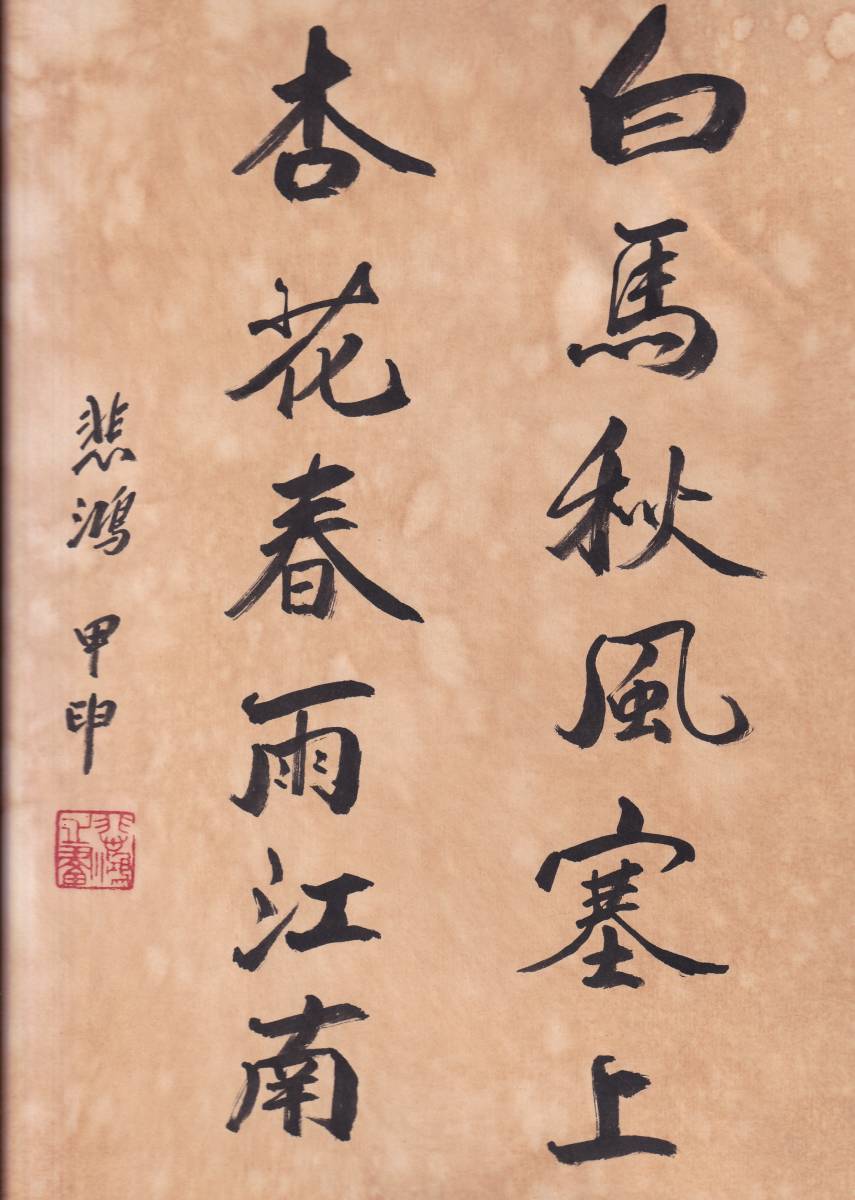 白馬秋風塞上
杏花春雨江南
悲鴻 甲申